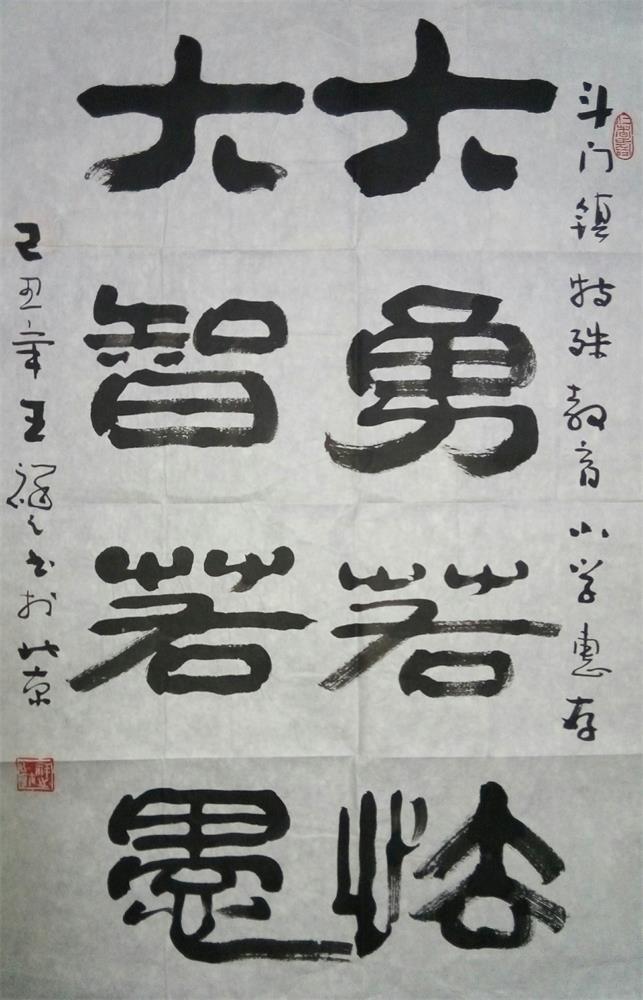 斗门镇特殊教育小学惠存
大勇若怯
大智若愚
己丑年王祥之书于北京